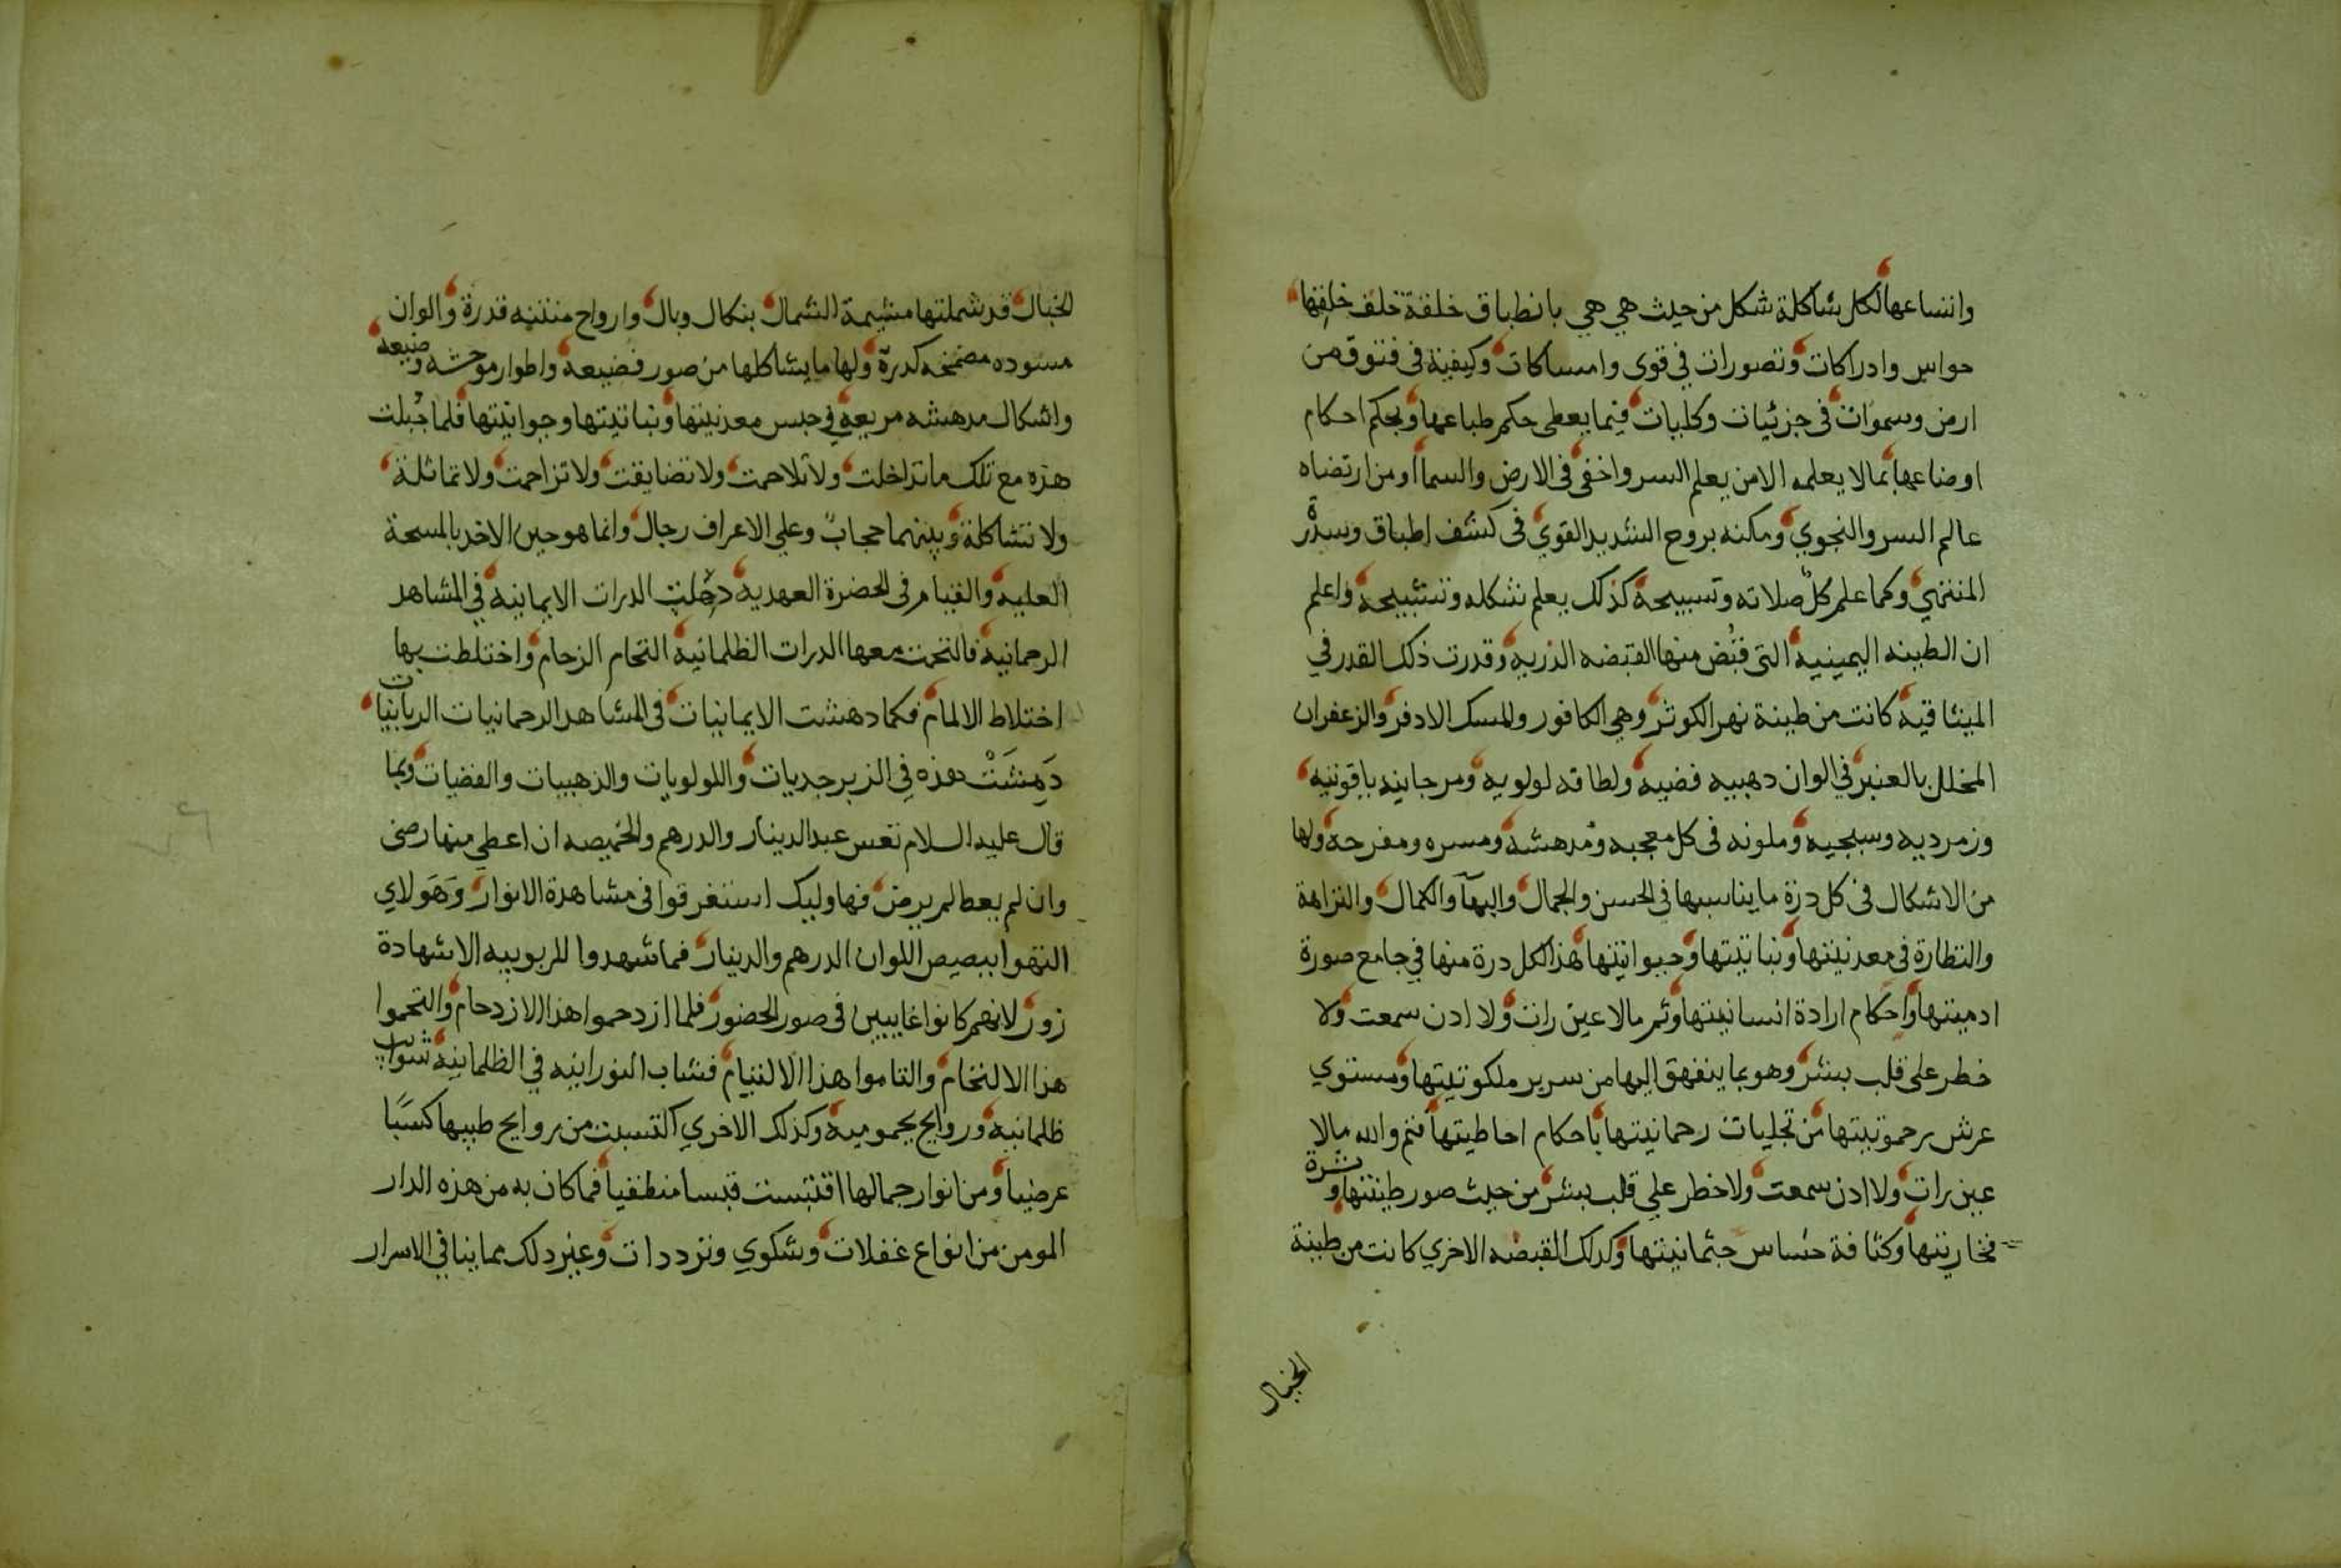 واتساعها لكل شاكلة شكل من حيث هي هي بانطباق خلقة خلف خلفها
حواس وادراكات وتصورات في قوى وامساكات وكيفية في فتوق من
ارض وسموات في جزئيات وكليات فيما يعطى حكم طباعها وبحكم احكام
اوضاعها بما لا يعلمه الا من يعلم السر واخفى في الارض والسما او من ارتضاه
عالم السر والنجوي ومكنه بروح الشديد القوي في كشف اطباق وسدرة
المنتهي وكما علم كل صلاته وتسبيحه كذلك يعلم تشكله وتشبيحه واعلم
ان الطينه اليمينيه التي قبض منها القبضه الذريه وقدرت ذلك القدر في
الميثاقيه كانت من طينة نهر الكوثر وهي الكافور والمسك الادفر والزعفران
المخلل بالعنبر في الوان دهبيه فضيه ولطاقه لولويه ومرجانيه ياقوتيه
وزمرديه وسبجيه وملونه في كل معجبه ومدهشه ومسره ومفرحه ولها
من الاشكال في كل درة ما يناسبها في الحسن والجمال والبهآ والكمال والنزاهة
والنظارة في معدنيتها ونباتيتها وحيوانيتها هذا لكل درة منها في جامع صورة
ادميتها واحكام ارادة انسانيتها وثم مالا عين رات ولا ادن سمعت ولا
خطر على قلب بشر وهو بما ينفهق اليها من سرير ملكوتيتها ومستوي
عرش رحموتيتها من تجليات رحمانيتها باحكام احاطيتها فثم والله مالا
عين رات ولا ادن سمعت ولا خطر علي قلب بشر من حيث صور طينتها ونشرة
فخاريتها وكثافة حساس جثمانيتها وكدلك القبضه الاخري كانت من طينة
الخبال
الخبال قد شملتها مشيمة الشمال بنكال وبال وارواح منتنيه قدرة والوان
مسوده مضمخه كدرة ولها ما يشاكلها من صور فضيعه واطوار موحشه وضيعه
واشكال مدهشه مريعه في حبس معدنيتها ونباتيتها وحيوانيتها فلما جبلت
هذه مع تلك ما تداخلت ولا تلاحمت ولا تضايقت ولا تزاحمت ولا تماثلة
ولا تشاكلة وبينهما حجاب وعلي الاعراف رجال وانما هو حين الاخد بالمسحة
العليه والقيام في الحضرة العهديه دخلت الدرات الايمانيه في المشاهد
الرحمانيه فالتحمت معها الدرات الظلمانيه التحام الزحام واختلطت بها
اختلاط الالمام فكما دهشت الايمانيات في المشاهد الرحمانيات الربانيات
دهشت هذه في الزبرجديات واللولويات والذهبيات والفضيات وبما
قال عليه السلام تعس عبد الدينار والدرهم والخميصه ان اعطي منها رضى
وان لم يعط لم يرض فهاوليك استغرقوا في مشاهدة الانوار وهولاي
التهوا ببصيص اللوان الدرهم والدينار فما شهدوا للربوبيه الا شهادة
زور لانهم كانوا غايبين في صور الحضور فلما ازدحموا هذا الازدحام والتحموا
هذا الالتحام والتاموا هذا الالتيام فشاب النورانيه في الظلمانيه شوايب
ظلمانيه وروايح يحموميه وكذلك الاخري اكتسبت من روايح طيبها كسبا
عرضيا ومن انوار جمالها اقتبست قبسا منطفيا فما كان به من هذه الدار
المومن من انواع غفلات وشكوي وترددات وغير دلك مما ينافي الاسرار